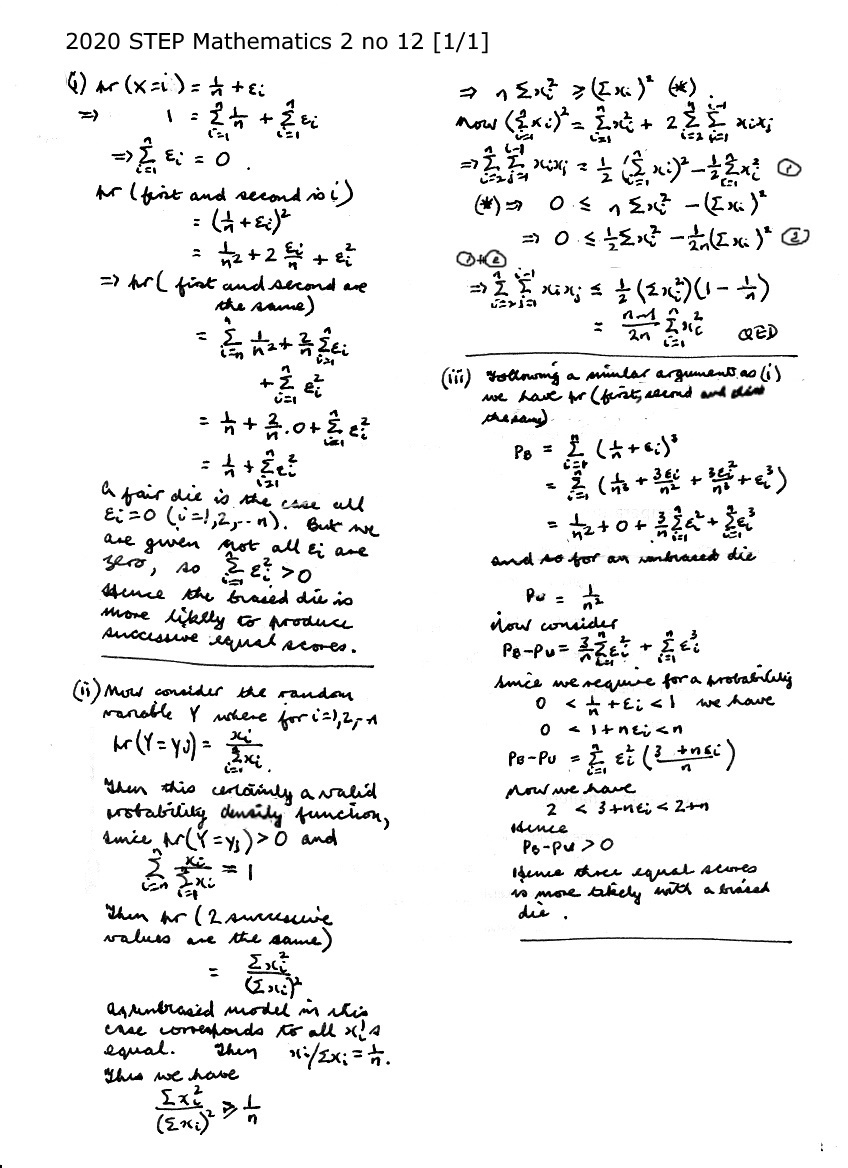 2020 STEP Mathematics 2 no 12 [1/1]
(i) pr (X=i) = 1/n + εi
⇒ 1 = Σ_{i=1}^{n} 1/n + Σ_{i=1}^{n} εi
⇒ Σ_{i=1}^{n} εi = 0 .
pr (first and second is i)
= (1/n + εi)²
= 1/n² + 2 εi/n + εi²
⇒ pr ( first and second are
the same)
= Σ_{i=n}^{n} 1/n² + 2/n Σ_{i=1}^{n} εi
+ Σ_{i=1}^{n} εi²
= 1/n + 2/n . 0 + Σ_{i=1}^{n} εi²
= 1/n + Σ_{i=1}^{n} εi²
A fair die is the case all
εi = 0 (i=1,2,..n). But we
are given not all εi are
zero, so Σ_{i=1}^{n} εi² > 0
Hence the biased die is
more likely to produce
successive equal scores.
(ii) Now consider the random
variable Y where for i=1,2,..n
pr(Y=yj) = xi / Σ_{i=1}^{n} xi .
Then this certainly a valid
probability density function,
since pr(Y=yj) > 0 and
Σ_{i=n}^{n} xi / Σ_{i=1}^{n} xi = 1
Then pr (2 successive
values are the same)
= Σxi² / (Σxi)²
An unbiased model in this
case corresponds to all xi's
equal. Then xi/Σxi = 1/n.
Thus we have
Σxi² / (Σxi)² ≥ 1/n
⇒ n Σxi² ≥ (Σxi)² (*) .
Now (Σ_{i=1}^{n} xi)² = Σ_{i=1}^{n} xi² + 2 Σ_{i=2}^{n} Σ_{j=1}^{i-1} xixj
⇒ Σ_{i=2}^{n} Σ_{j=1}^{i-1} xixj = 1/2 (Σ_{i=1}^{n} xi)² - 1/2 Σ_{i=1}^{n} xi² ①
(*) ⇒ 0 ≤ n Σxi² - (Σxi)²
⇒ 0 ≤ 1/2 Σxi² - 1/2n (Σxi)² ②
①+②
⇒ Σ_{i=2}^{n} Σ_{j=1}^{i-1} xixj ≤ 1/2 (Σxi²)(1 - 1/n)
= n-1/2n Σ_{i=1}^{n} xi² QED
(iii) Following a similar argument as (i)
we have pr (first, second and
the same)
PB = Σ_{i=1}^{n} (1/n + εi)³
= Σ_{i=1}^{n} (1/n³ + 3εi/n² + 3εi²/n + εi³)
= 1/n² + 0 + 3/n Σ_{i=1}^{n} εi² + Σ_{i=1}^{n} εi³
and so for an unbiased die
PU = 1/n²
Now consider
PB-PU = 3/n Σ_{i=1}^{n} εi² + Σ_{i=1}^{n} εi³
Since we require for a probability
0 < 1/n + εi < 1 we have
0 < 1+nεi < n
PB-PU = Σ_{i=1}^{n} εi² (3+nεi / n)
Now we have
2 < 3+nεi < 2+n
Hence
PB-PU > 0
Hence three equal scores
is more likely with a biased
die .